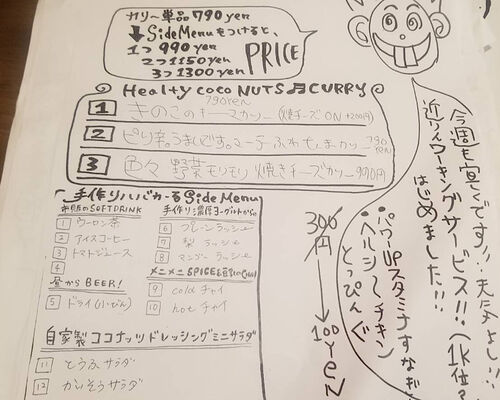 カリー単品790yen
↓SideMenuをつけると、
1つ 990yen
2つ 1150yen
3つ 1300yen
PRICE
Healty coco NUTS♬CURRY
1 きのこのキーマカリー (焼チーズON +200円)
790yen
2 ピリ辛。うまんです。マーテー ふわもちまカリー 790yen
3 色々野菜モリモリ焼きチーズカリー990円
手作りハンバーるSideMenu
市販のSOFTDRINK
1 ウーロン茶
2 アイスコーヒー
3 トマトジュース
4
昼からBEER!
5 ドライ(小びん)
手作り濃厚ヨーグルトから
6 プレーンラッシー
7 梨ラッシー
8 マンゴーラッシー
メニメニSPICEを
9 coldチャイ
10 hotチャイ
自家製ココナッツドレッシングミニサラダ
11 とうふサラダ
12 かいそうサラダ
今週も宜しくです!!
近りんワーキングサービス!!(1K位?
はじめました!!
•パワーUPスタミナすなぎも
•ヘルシーチキン
とっぴんぐ
300円
↓
100yeN